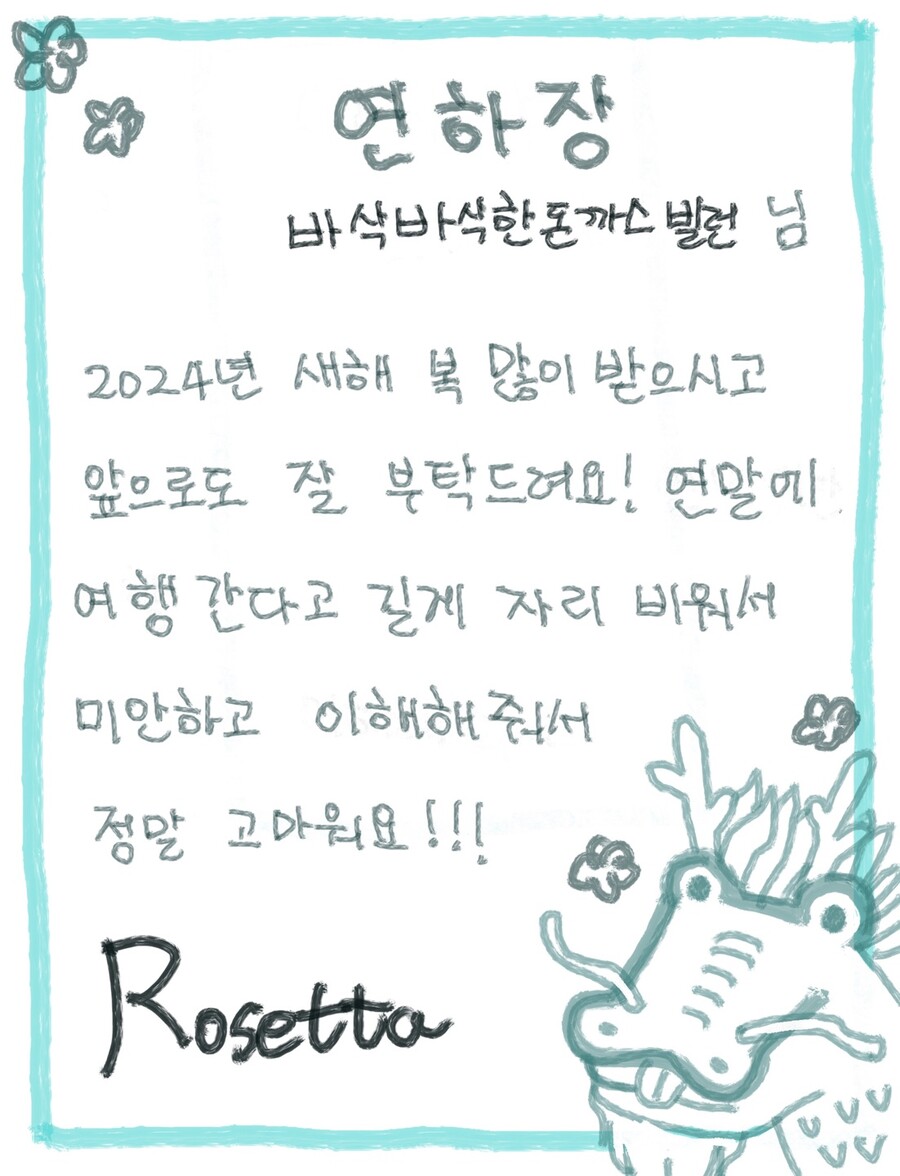 연하장
바삭바삭한돈까스빌런 님
2024년 새해 복 많이 받으시고
앞으로도 잘 부탁드려요! 연말에
여행간다고 길게 자리 비워서
미안하고 이해해줘서
정말 고마워요!!!
Rosetta